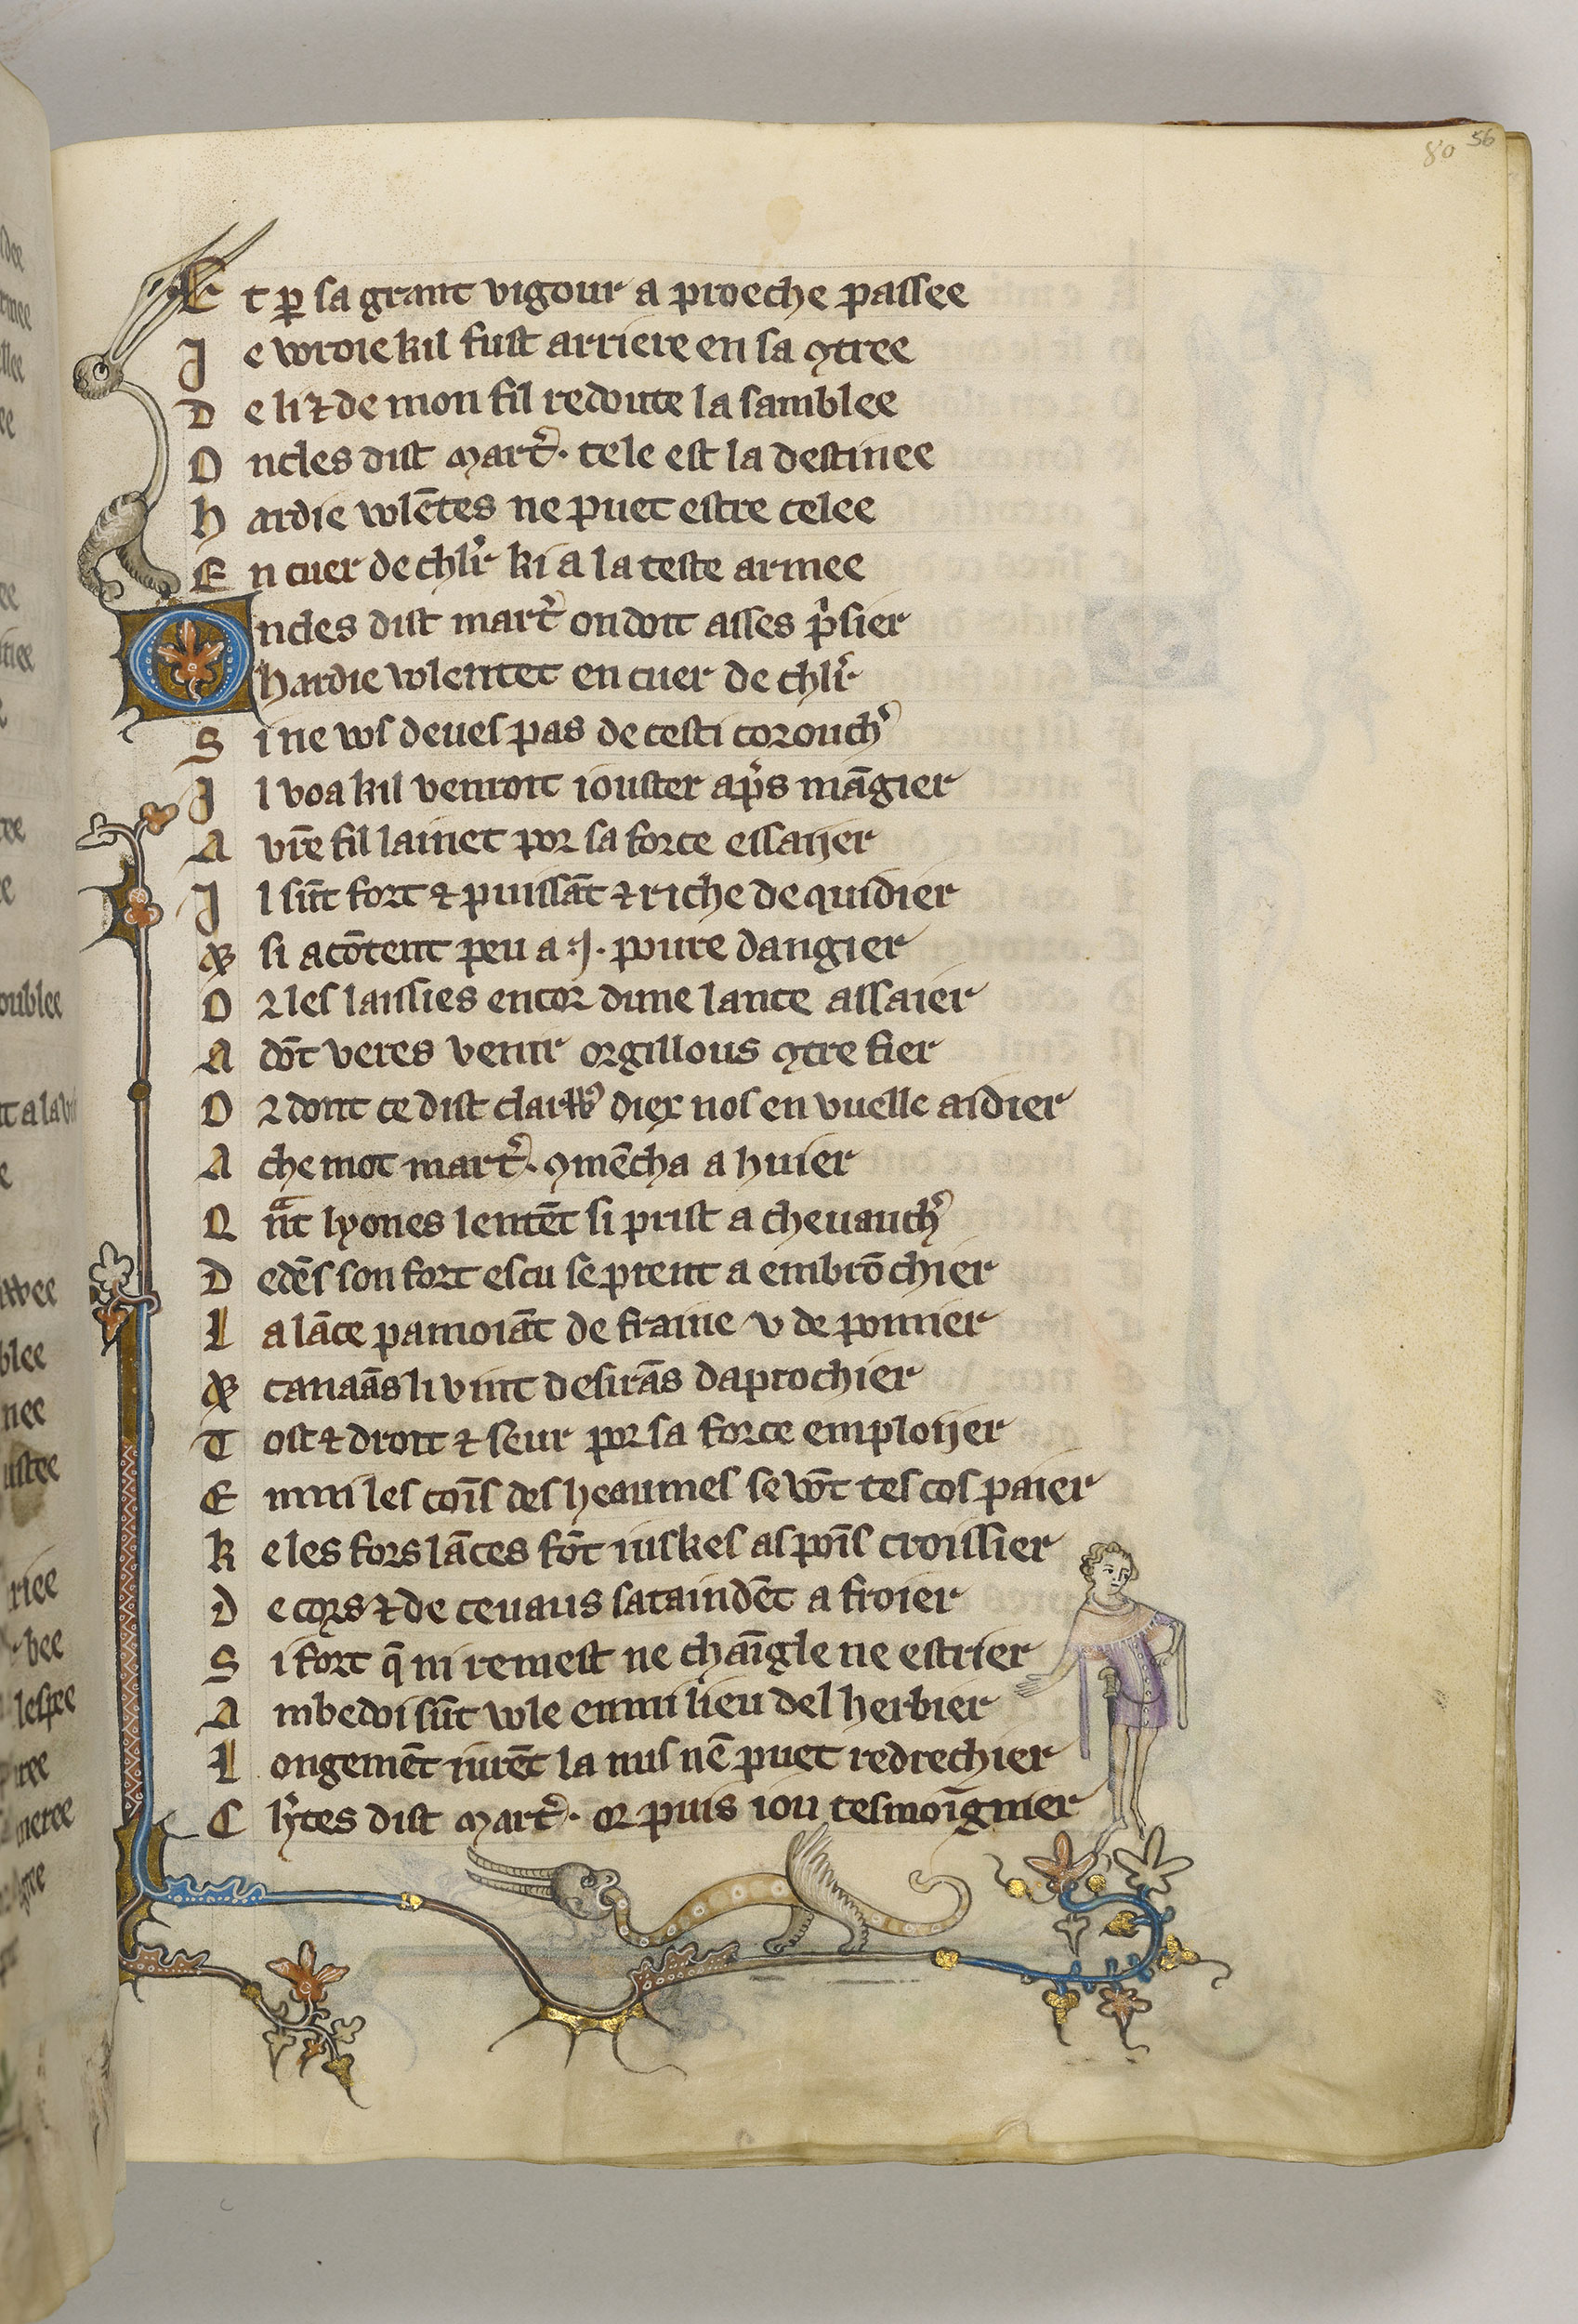 80 56
Et ꝑ sa grant vigour a proeche passee
Je voroie kil fust arriere en sa ꝯtree
De li ⁊ de mon fil redoute la samblee
Oncles dist marẜ. tele est la destinee
Hardie vol̄etes ne puet estre celee
En cuer de chl̓r ki a la teste armee
Oncles dist mart̓ on doit asses p̓sier
Hardie volentet en cuer de chl̓r
Si ne vos deues pas de cesti corouch̓
Jl voa kil venroit iouster ap̓s māgier
A vr̄e fil lainet por sa force essaijer
Jl sūt fort ⁊ puissāt ⁊ riche de quidier
si acōtent peu a .j. poure dangier
Or les laissies encor dune lance assaier
A dōt veres venir orgillous ꝯtre fier
Or dont ce dist clarw̓ diex nos en vuelle aidier
A che mot mart̓. ꝯmēcha a huier
Qnt lyones lentēt si prist a cheuauch̓
Dedēs son fort escu se prent a embrōchier
La lāce pamoiāt de fraine v de pomier
canaās li vint desirās daprochier
Tost ⁊ droit ⁊ seur por sa force emploijer
Enmi les coīs des heaumes se vōt tes cos paier
Ke les fors lāces fōt iuskes as poīs croissier
De cors ⁊ de ceuaus sataindēt a froier
Si fort q̄ ni remest ne chaīgle ne estrier
Ambedoi sūt vole enmi lieu del herbier
Longemēt iurēt la nus nē puet redrechier
Cly̓tes dist mart̓. or puis iou tesmoīgnier